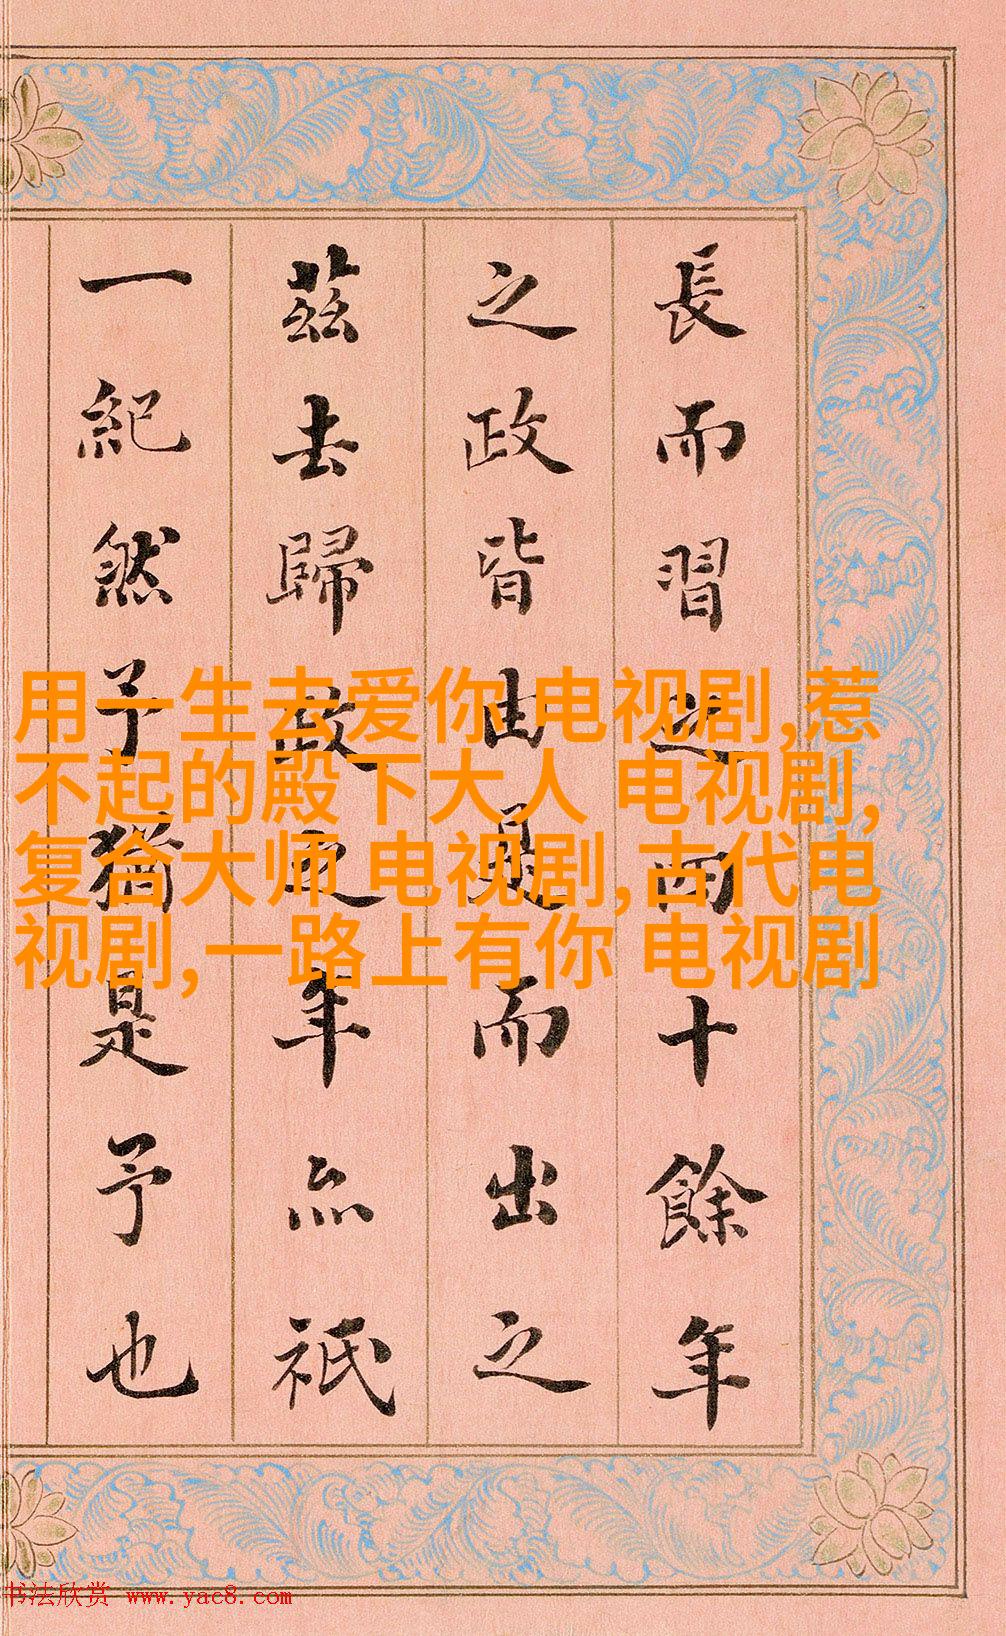 長而習之四十餘年
之政皆由是而出之
茲去歸政之年亦祇
一紀然予猶是予也
用一生去爱你 电视剧,惹
不起的殿下大人 电视剧,
复合大师 电视剧,古代电
视剧,一路上有你 电视剧
书法欣赏 www.yac8.com